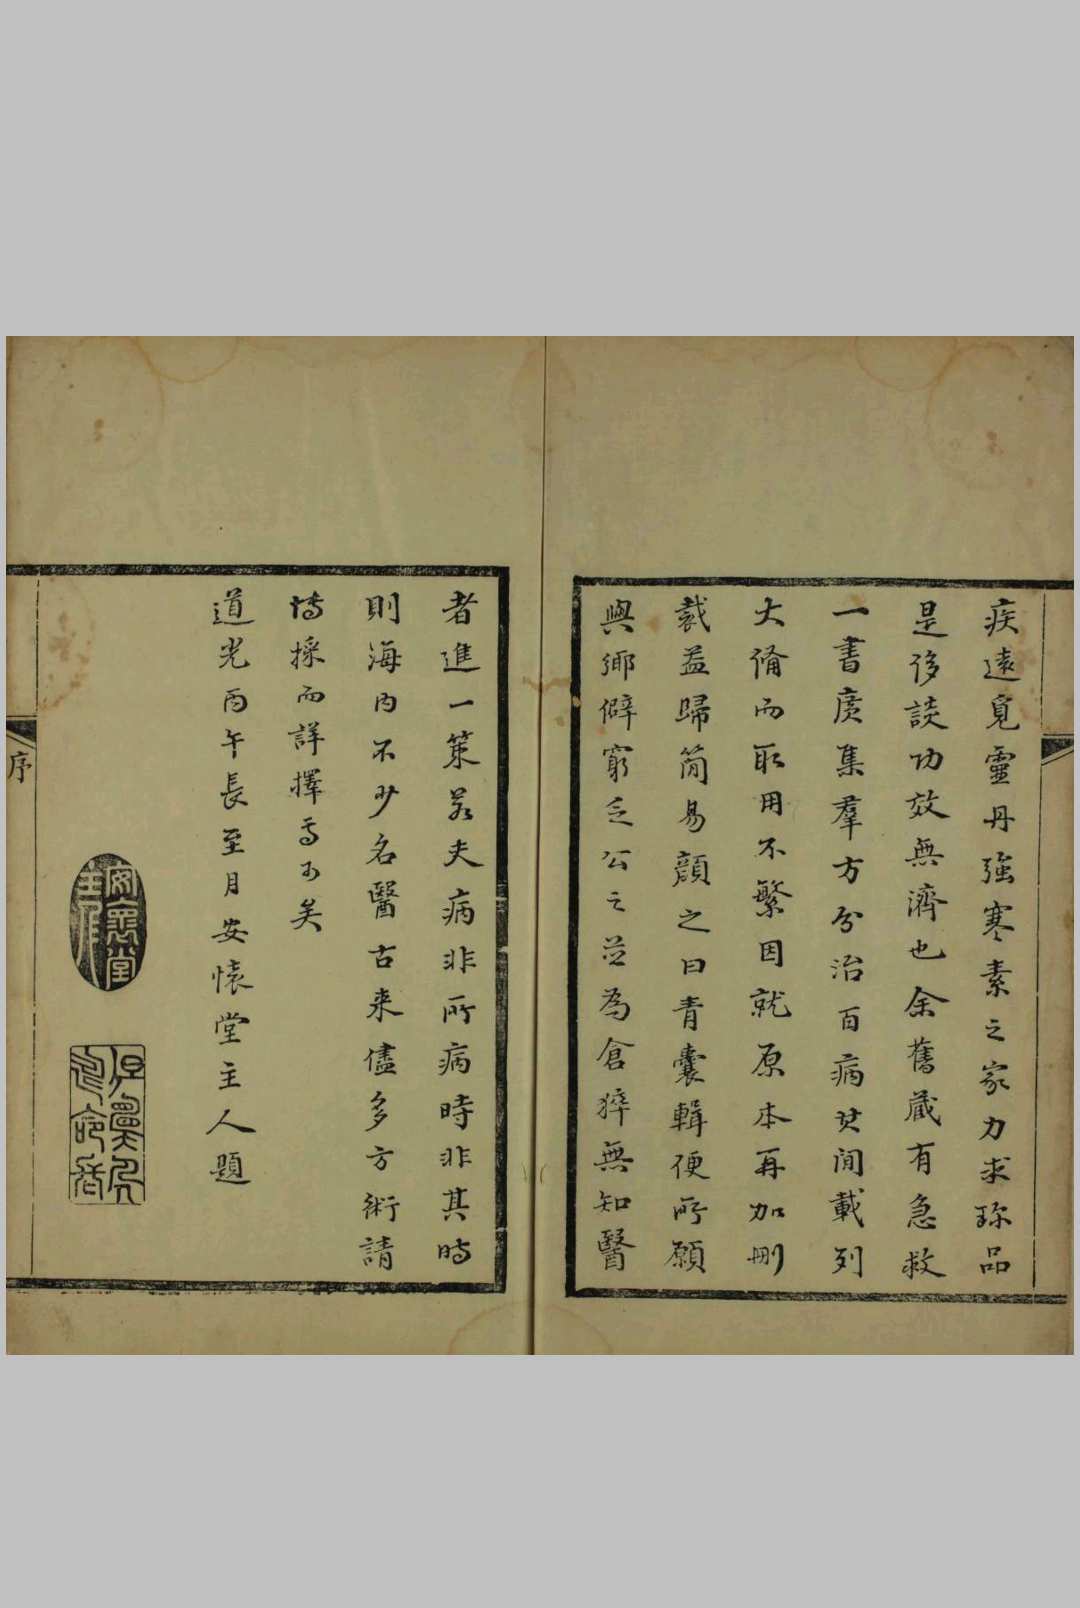 疾遠覓靈丹強寒素之家力求珎品
是侈談功效無濟也余舊蔵有急救
一書廣集羣方分治百病其間載列
大俻而取用不繁因就原本再加刪
裁益歸簡易顔之曰青囊輯便所願
與鄉僻窮乏公之並為倉猝無知醫
者進一策若夫病非所病時非其時
則海内不少名醫古来儘多方術請
博採而詳擇焉可矣
道光丙午長至月安懐堂主人題
安褱堂主人
序